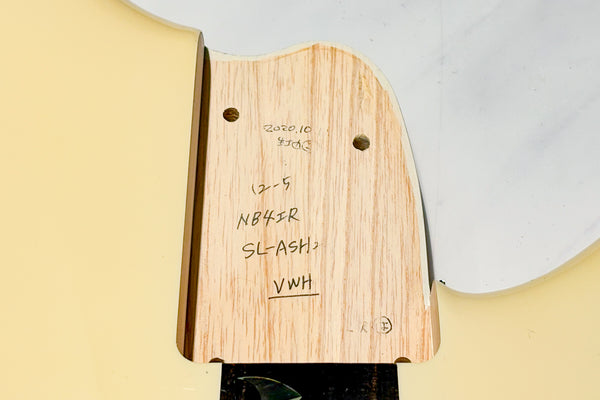 2020.10
12-5
NB4IR
SL-ASH2
VWH